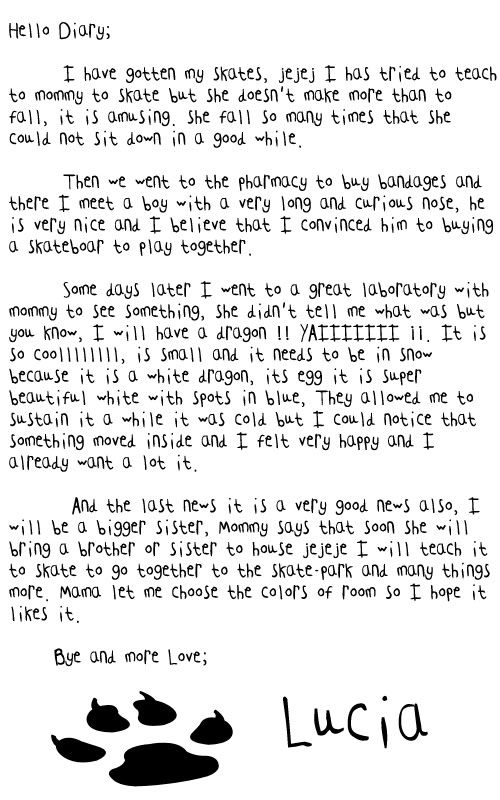 Hello Diary;
I have gotten my skates, jejej I has tried to teach
to mommy to skate but she doesn't make more than to
fall, it is amusing. She fall so many times that she
could not sit down in a good while.
Then we went to the pharmacy to buy bandages and
there I meet a boy with a very long and curious nose, he
is very nice and I believe that I convinced him to buying
a skateboar to play together.
Some days later I went to a great laboratory with
mommy to see something, she didn't tell me what was but
you know, I will have a dragon !! YAIIIIIII ii. It is
so coolllllllll, is small and it needs to be in snow
because it is a white dragon, its egg it is super
beautiful white with spots in blue, They allowed me to
sustain it a while it was cold but I could notice that
something moved inside and I felt very happy and I
already want a lot it.
And the last news it is a very good news also, I
will be a bigger sister, Mommy says that soon she will
bring a brother or sister to house jejeje I will teach it
to skate to go together to the skate-park and many things
more. Mama let me choose the colors of room so I hope it
likes it.
Bye and more Love;
Lucia